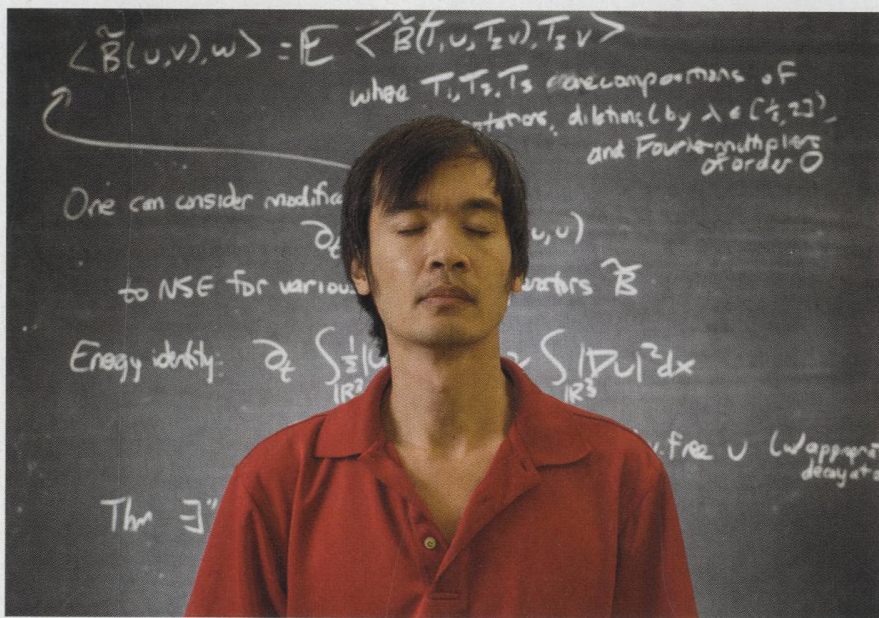 ⟨B̃(u,v),w⟩ = 𝔼 ⟨B̃(T₁u,T₂v),T₃v⟩
where T₁,T₂,T₃ are compositions of
dilations (by λ ∈ [½,2]),
and Fourier multipliers
of order 0
One can consider
∂ₜ u,u)
to NSE for B̃
Energy identity: ∂ₜ ∫_ℝ³ ½|u ∫_ℝ³ |∇u|²dx
free u (w/
decay at
Thm ∃"